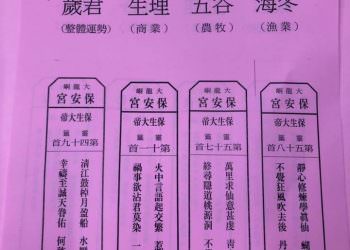 海冬
(漁業)
五谷
(農牧)
生理
(商業)
歲君
(整體運勢)
大龍峒
保安宮
保生大帝
靈籤
第五十八首
靜心修煉學眞仙
不覺狂風吹去後
大龍峒
保安宮
保生大帝
靈籤
第五十七首
萬里求仙意甚虔
終尋隱道桃源洞
大龍峒
保安宮
保生大帝
靈籤
第十一首
火中言語起交繁
禍事欲沾君莫染
大龍峒
保安宮
保生大帝
靈籤
第四十九首
清江鼓棹月盈船
幸禱至誠天眷佑